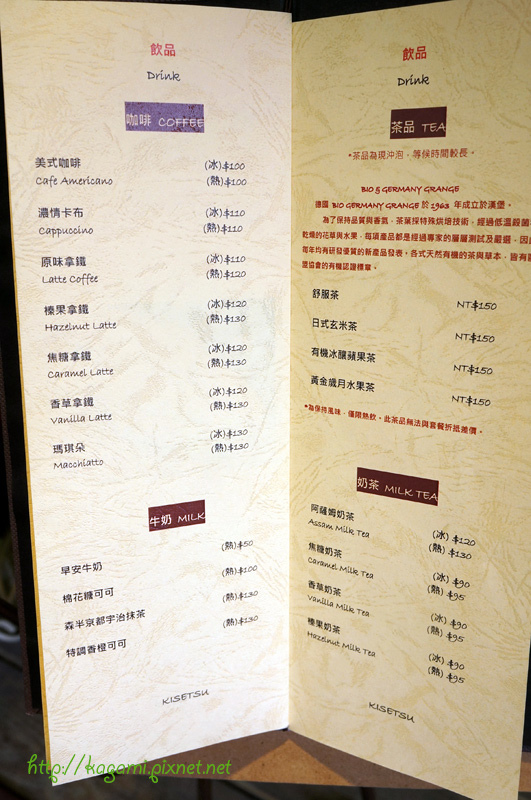 飲品
Drink
咖啡 COFFEE
美式咖啡 (冰)$100
Cafe Americano (熱)$100
濃情卡布 (冰)$110
Cappuccino (熱)$110
原味拿鐵 (冰)$110
Latte Coffee (熱)$120
榛果拿鐵 (冰)$120
Hazelnut Latte (熱)$130
焦糖拿鐵 (冰)$120
Caramel Latte (熱)$130
香草拿鐵 (冰)$120
Vanilla Latte (熱)$130
瑪琪朵 (冰)$130
Macchiatto (熱)$130
牛奶 MILK
早安牛奶 (熱)$50
棉花糖可可 (熱)$100
森半京都宇治抹茶 (熱)$130
特調香橙可可 (熱)$130
KISETSU
飲品
Drink
茶品 TEA
*茶品為現沖泡，等候時間較長。
BIO & GERMANY GRANGE
德國 BIO GERMANY GRANGE 於 1963 年成立於漢堡。
為了保持品質與香氣，茶葉採特殊烘培技術，經過低溫殺菌
乾燥的花草與水果，每項產品都是經過專家的層層測試及嚴選，因
每年均有研發優質的新產品發表。各式天然有機的茶與草本，皆有
盟協會的有機認證標章。
舒服茶 NT$150
日式玄米茶 NT$150
有機冰釀蘋果茶 NT$150
黃金歲月水果茶 NT$150
*為保持風味，僅限熱飲。此茶品無法與套餐折抵差價。
奶茶 MILK TEA
阿薩姆奶茶 (冰) $120
Assam Milk Tea (熱) $130
焦糖奶茶 (冰) $90
Caramel Milk Tea (熱) $95
香草奶茶 (冰) $90
Vanilla Milk Tea (熱) $95
榛果奶茶 (冰) $90
Hazelnut Milk Tea (熱) $95
KISETSU
http://kagami.pixnet.net